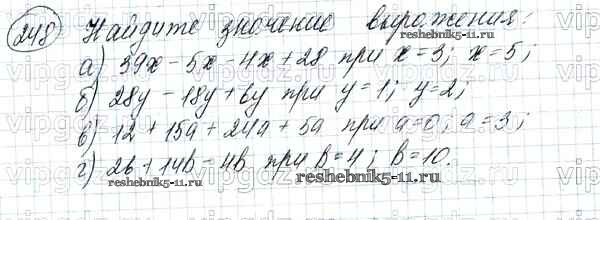 248 Найдите значение выражения:
reshebnik5-11.ru
а) 39x - 5x - 4x + 28 при x = 3; x = 5;
б) 28y - 18y + 6y при y = 1; y = 2;
в) 12 + 15a + 24a + 5a при a = 0; a = 3;
г) 2b + 14b - 4b при b = 4; b = 10.
reshebnik5-11.ru reshebnik5-11.ru